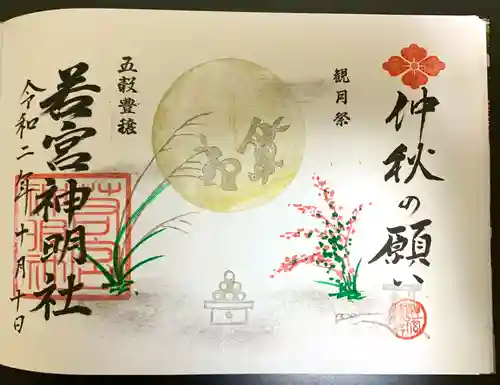 仲秋の願い
観月祭
五穀豊穣
若宮神明社
令和二年十月十日